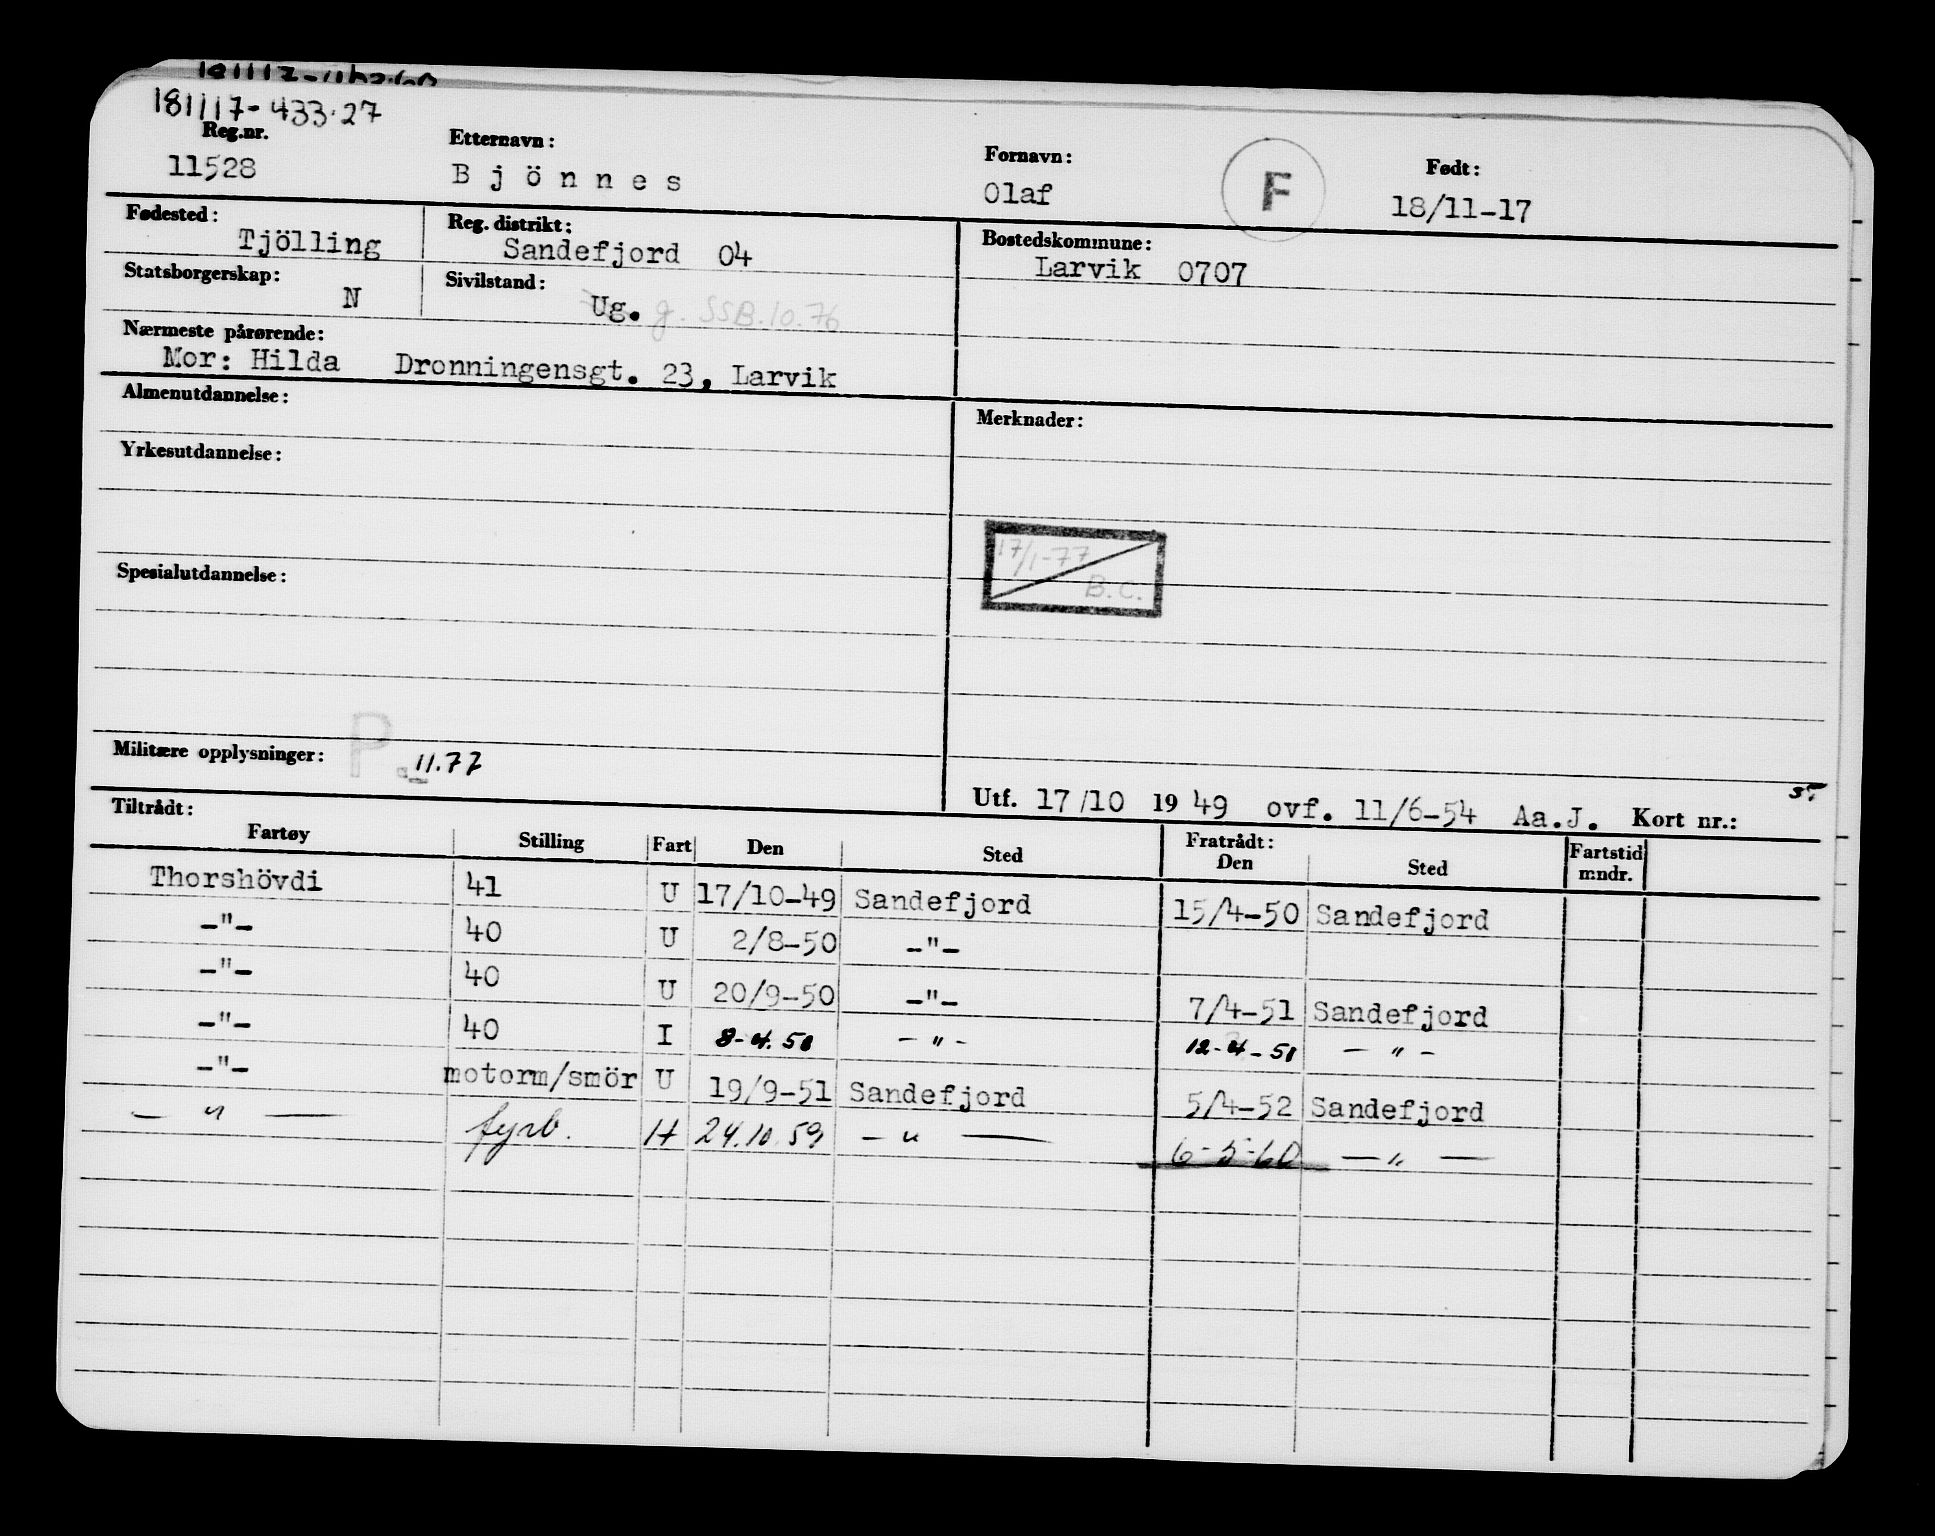 181117-433.27
Reg.nr. Etternavn: Fornavn: F Født:
11528 Bjönnes Olaf 18/11-17
Fødested: Reg. distrikt: Bostedskommune:
Tjölling Sandefjord 04 Larvik 0707
Statsborgerskap: Sivilstand:
N Ug. g. SSB.10.76
Nærmeste pårørende:
Mor: Hilda Dronningensgt. 23, Larvik
Almenutdannelse: Merknader:
Yrkesutdannelse:
17/1-77
B.C.
Spesialutdannelse:
Militære opplysninger: P. 11.77
Utf. 17/10 1949 ovf. 11/6-54 Aa.J. Kort nr.:
Tiltrådt: Fratrådt:
Fartøy Stilling Fart Den Sted Den Sted Fartstid mndr.
Thorshövdi 41 U 17/10-49 Sandefjord 15/4-50 Sandefjord
-"- 40 U 2/8-50 -"-
-"- 40 U 20/9-50 -"- 7/4-51 Sandefjord
-"- 40 I 8-4.51 -"- 12-4-51 -"-
-"- motorm/smör U 19/9-51 Sandefjord 5/4-52 Sandefjord
-"- fyrb. H 24.10.59 -"- 6-5-60 -"-